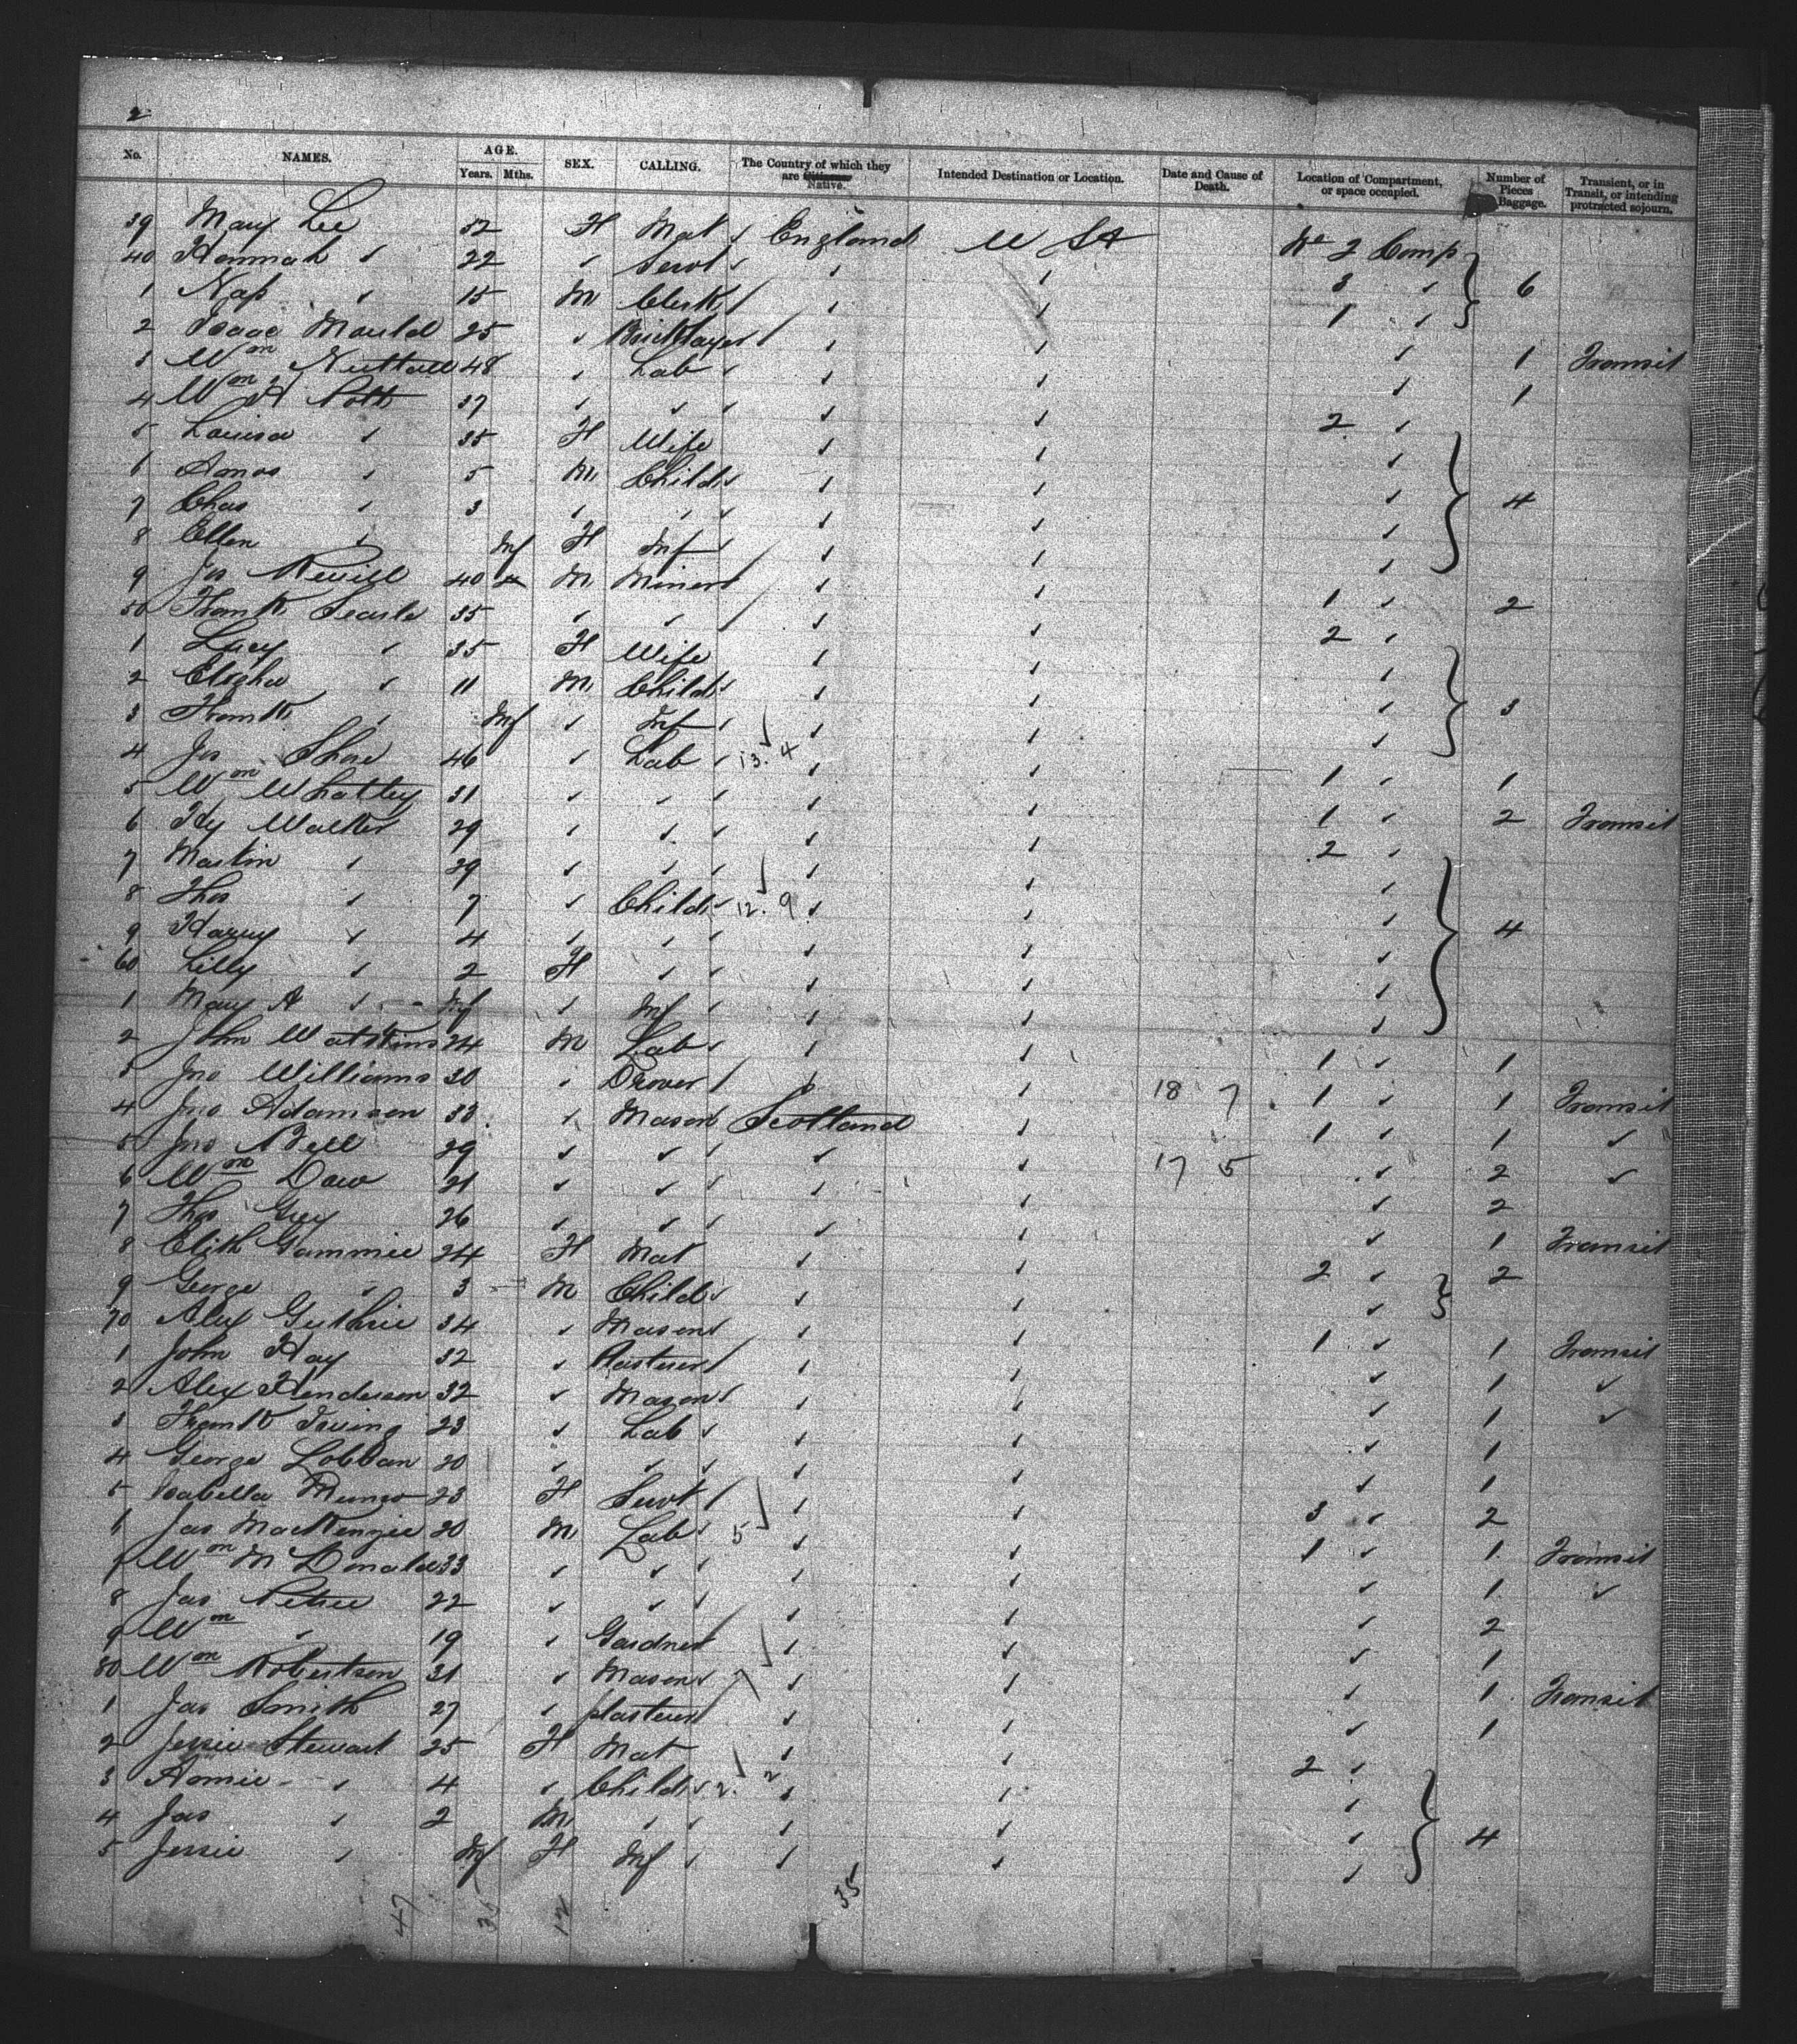 2
No. NAMES. AGE. Years. Mths. SEX. CALLING. The Country of which they are Native. Intended Destination or Location. Date and Cause of Death. Location of Compartment, or space occupied. Number of Pieces Baggage. Transient, or in Transit, or intending protracted sojourn.
39 Mary Lee 52 F Mat ✓ England U St No 2 Comp
40 Hannah ✓ 22 ✓ Servt ✓ ✓ ✓ 3 ✓ 6
1 Nap ✓ 15 M Clerk / ✓ ✓ 1 ✓
2 Isaac Mauld 25 ✓ Bricklayer / ✓ ✓ ✓ 1 Transit
3 Wm Nuttall 48 ✓ Lab ✓ ✓ ✓ ✓ 1
4 Wm H Potts 37 ✓ ✓ ✓ ✓ ✓ 2 ✓
5 Louisa ✓ 35 F Wife ✓ ✓ ✓
6 Amos ✓ 5 M Child ✓ ✓ ✓ ✓ 4
7 Chas ✓ 3 ✓ ✓ ✓ ✓ ✓ ✓
8 Ellen ✓ Inf F Inf ✓ ✓ ✓ ✓
9 Jos Nevill 40 M Miner / ✓ ✓ 1 ✓ 2
50 Frank Searle 35 ✓ ✓ / ✓ ✓ 2 ✓
1 Lucy ✓ 35 F Wife ✓ ✓ ✓
2 Elisha ✓ 11 M Child ✓ ✓ ✓ ✓ 3
3 Frank ✓ Inf ✓ Inf ✓ ✓ ✓ ✓
4 Jos Shaw 46 ✓ Lab ✓ 13. 4 ✓ ✓ 1 ✓ 1
5 Wm Whatley 31 ✓ ✓ ✓ ✓ ✓ 1 ✓ 2 Transit
6 Hy Walker 29 ✓ ✓ ✓ ✓ ✓ 2 ✓
7 Martin ✓ 29 ✓ ✓ ✓ ✓ ✓ ✓
8 Thos ✓ 7 ✓ Child ✓ 12. 9 ✓ ✓ ✓
9 Harry ✓ 4 ✓ ✓ ✓ ✓ ✓ ✓ 4
60 Lilly ✓ 2 F ✓ ✓ ✓ ✓ ✓
1 Mary A ✓ Inf ✓ Inf ✓ ✓ ✓ ✓
2 John Watkins 24 M Lab ✓ ✓ ✓ 1 ✓ 1
3 Jno Williams 30 ✓ Drover / ✓ ✓ 18 7 1 ✓ 1 Transit
4 Jno Adamson 33 ✓ Mason Scotland ✓ 1 ✓ 1 ✓
5 Jno Bell 29 ✓ ✓ ✓ ✓ ✓ 17 5 ✓ 2 ✓
6 Wm Daw 21 ✓ ✓ ✓ ✓ ✓ ✓ 2
7 Thos Grey 26 ✓ ✓ ✓ ✓ ✓ ✓ 1 Transit
8 Elith Gammie 24 F Mat ✓ ✓ 2 ✓ 2
9 George ✓ 3 M Child ✓ ✓ ✓ ✓
70 Alex Guthrie 34 ✓ Mason ✓ ✓ ✓ 1 ✓ 1 Transit
1 John Hay 32 ✓ Plasterer / ✓ ✓ ✓ 1 ✓
2 Alex Henderson 32 ✓ Mason ✓ ✓ ✓ ✓ 1 ✓
3 Frank Irving 23 ✓ Lab ✓ ✓ ✓ ✓ 1
4 George Lobban 20 ✓ ✓ ✓ ✓ ✓ ✓ 1
5 Isabella Munro 23 F Servt / ✓ ✓ 3 ✓ 2
6 Jas MacKenzie 20 M Lab ✓ 5 ✓ ✓ 1 ✓ 1 Transit
7 Wm McDonald 33 ✓ ✓ ✓ ✓ ✓ ✓ 1 ✓
8 Jas Petrie 22 ✓ ✓ ✓ ✓ ✓ ✓ 2
9 Wm ✓ 19 ✓ Gardner ✓ ✓ ✓ 1
80 Wm Robertson 31 ✓ Mason ✓ 7 ✓ ✓ ✓ 1 Transit
1 Jas Smith 27 ✓ plasterer ✓ ✓ ✓ 1
2 Jessie Stewart 25 F Mat ✓ ✓ 2 ✓
3 Annie ✓ 4 ✓ Child ✓ 2. 2 ✓ ✓ ✓
4 Jas ✓ 2 M ✓ ✓ ✓ ✓ ✓ 4
5 Jessie ✓ Inf F Inf ✓ ✓ ✓ ✓
47 35 12 35